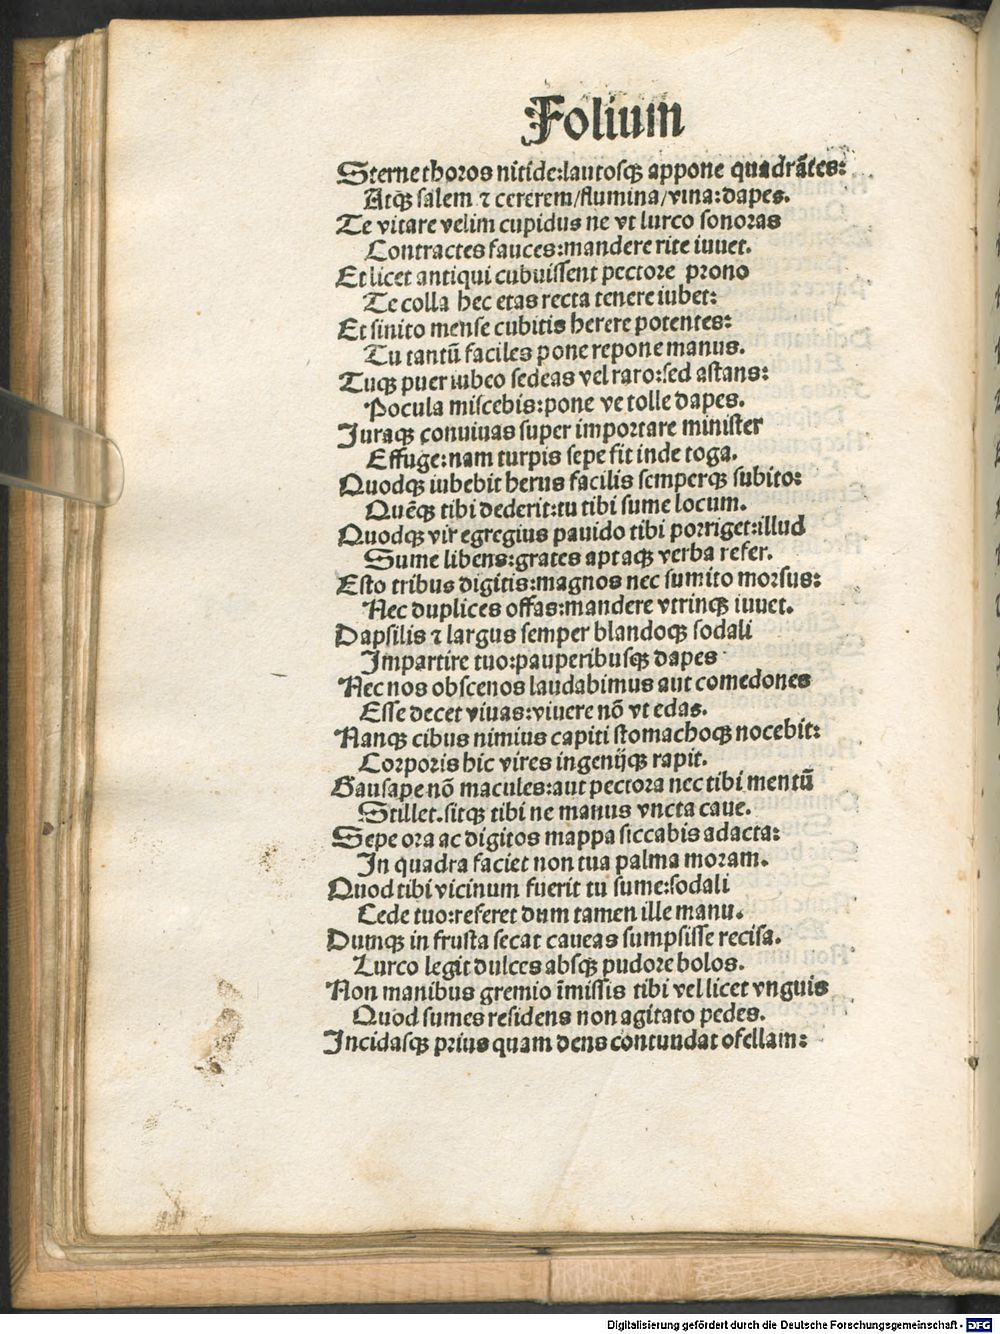 Folium
Sterne thoros nitide:lautosqꝫ appone quadrātes:
Atqꝫ salem ⁊ cererem/flumina/vina:dapes.
Te vitare velim cupidus ne vt lurco sonoras
Contractes fauces:mandere rite iuuet.
Et licet antiqui cubuissent pectore prono
Te colla hec etas recta tenere iubet:
Et sinito mense cubitis herere potentes:
Tu tantū faciles pone repone manus.
Tuqꝫ puer iubeo sedeas vel raro:sed astans:
Pocula miscebis:pone ve tolle dapes.
Iuraqꝫ conuiuas super importare minister
Effuge:nam turpis sepe fit inde toga.
Quodqꝫ iubebit herus facilis semperqꝫ subito:
Quēqꝫ tibi dederit:tu tibi sume locum.
Quodqꝫ vir egregius pauido tibi porriget:illud
Sume libens:grates aptaqꝫ verba refer.
Esto tribus digitis:magnos nec sumito morsus:
Nec duplices offas:mandere vtrinqꝫ iuuet.
Dapsilis ⁊ largus semper blandoqꝫ sodali
Impartire tuo:pauperibusqꝫ dapes
Nec nos obscenos laudabimus aut comedones
Esse decet viuas:viuere nō vt edas.
Nanqꝫ cibus nimius capiti stomachoqꝫ nocebit:
Corporis hic vires ingenijqꝫ rapit.
Gausape nō macules:aut pectora nec tibi mentū
Stillet.sitqꝫ tibi ne manus vncta caue.
Sepe ora ac digitos mappa siccabis adacta:
In quadra faciet non tua palma moram.
Quod tibi vicinum fuerit tu sume:sodali
Cede tuo:referet dum tamen ille manu.
Dumqꝫ in frusta secat caueas sumpsisse recisa.
Lurco legit dulces absqꝫ pudore bolos.
Non manibus gremio īmissis tibi vel licet vnguis
Quod sumes residens non agitato pedes.
Incidasqꝫ prius quam dens contundat ofellam:
Digitalisierung gefördert durch die Deutsche Forschungsgemeinschaft - DFG